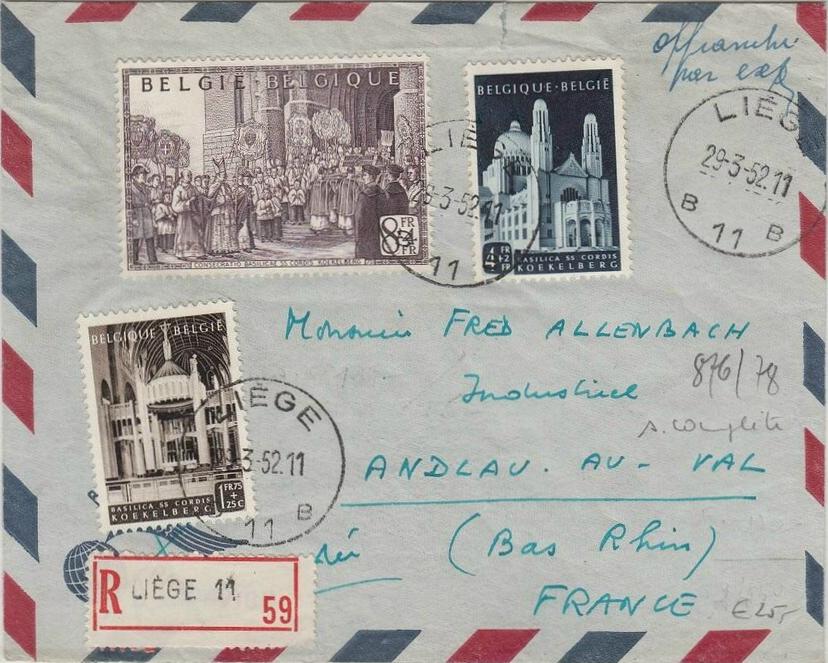 affranchi
par exp
BELGIE·BELGIQUE
8 FR
FR
CONSECRATIO BASILICAE SS CORDIS KOEKELBERG
BELGIQUE·BELGIË
4 FR
+2
FR
BASILICA SS CORDIS
KOEKELBERG
LIÉGE
29-3-52.11
11
LIÉGE
29-3-52.11
B 11 B
BELGIQUE·BELGIË
1 FR75
+
25C
BASILICA SS CORDIS
KOEKELBERG
LIÉGE
29-3-52.11
11 B
Monsieur FRED ALLENBACH
Industriel
876/78
s. complète
ANDLAU. AU- VAL
(Bas Rhin)
FRANCE
€25,-
R LIÈGE 11
59